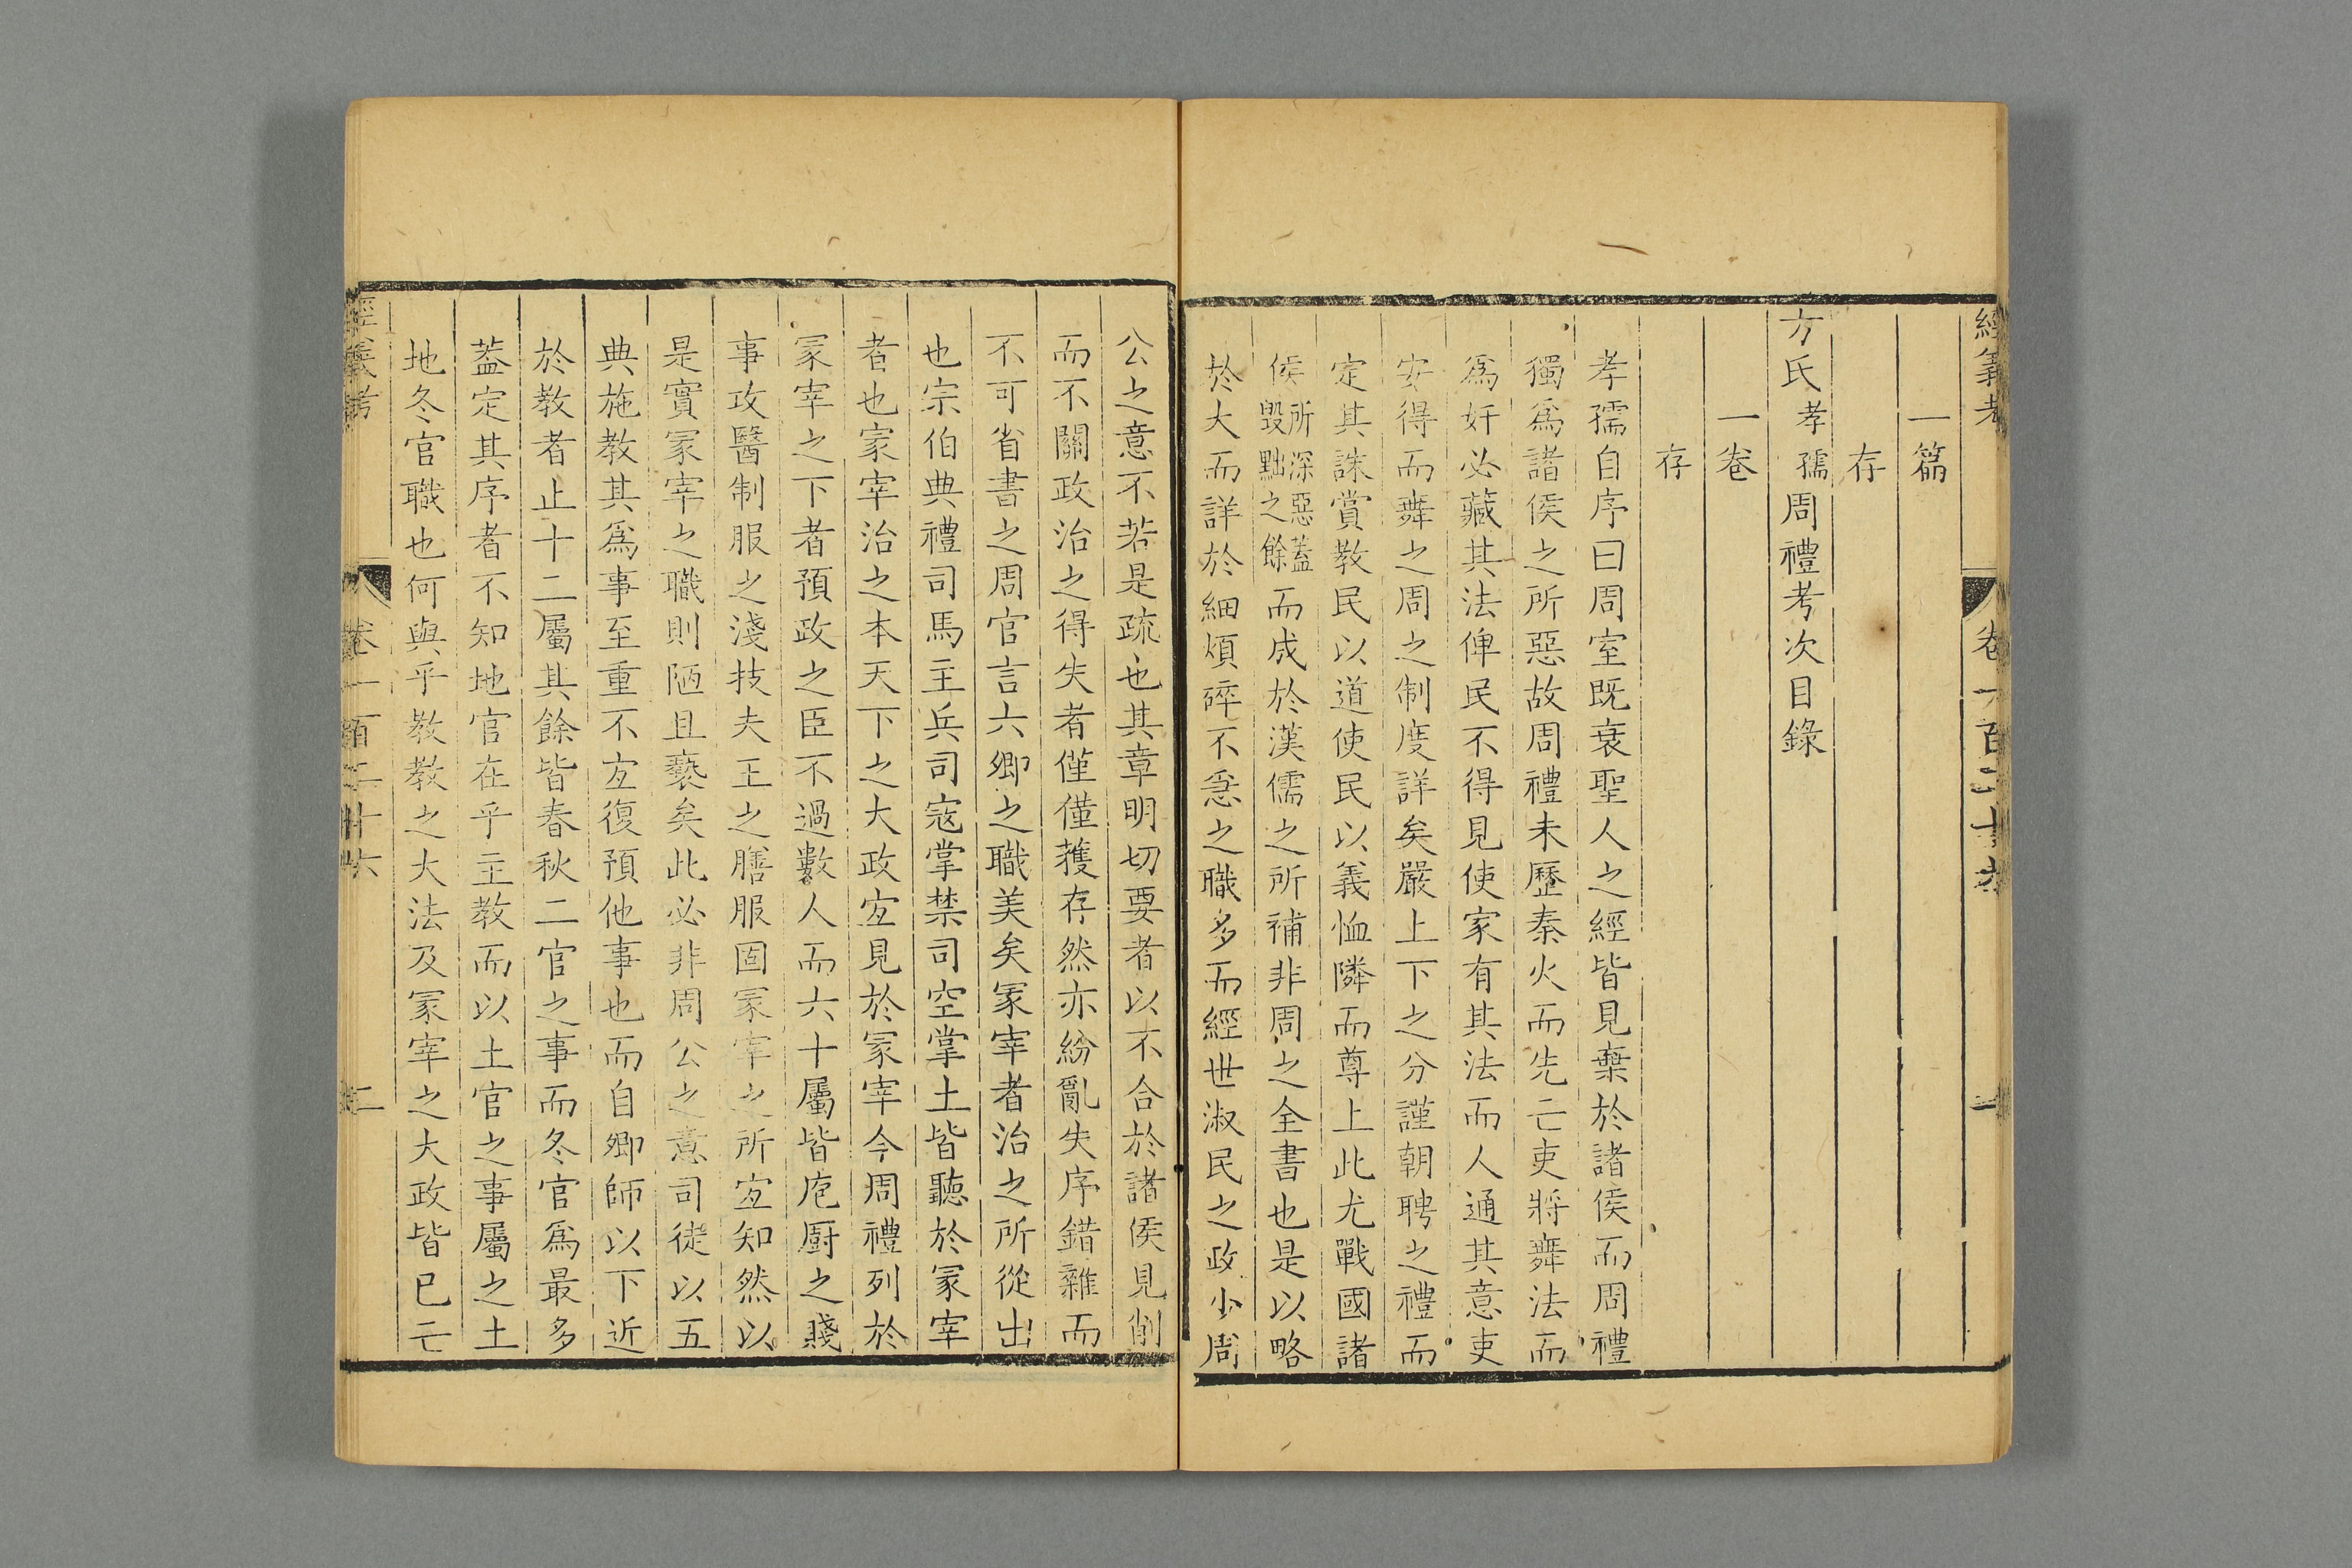 經義考 卷一百二十六 一
一篇
存
方氏孝孺周禮考次目錄
一卷
存
孝孺自序曰周室既衰聖人之經皆見棄於諸侯而周禮
獨爲諸侯之所惡故周禮未歷秦火而先亡吏將舞法而
爲奸必藏其法俾民不得見使家有其法而人通其意吏
安得而舞之周之制度詳矣嚴上下之分謹朝聘之禮而
定其誅賞敎民以道使民以義恤隣而尊上此尤戰國諸
侯所深惡蓋毀黜之餘而成於漢儒之所補非周之全書也是以略
於大而詳於細煩碎不急之職多而經世淑民之政少周
公之意不若是疏也其章明切要者以不合於諸侯見削
而不關政治之得失者僅僅獲存然亦紛亂失序錯雜而
不可省書之周官言六卿之職美矣冢宰者治之所從出
也宗伯典禮司馬主兵司寇掌禁司空掌土皆聽於冢宰
者也冢宰治之本天下之大政宜見於冢宰今周禮列於
冢宰之下者預政之臣不過數人而六十屬皆庖廚之賤
事攻醫制服之淺技夫王之膳服固冢宰之所宜知然以
是實冢宰之職則陋且褻矣此必非周公之意司徒以五
典施敎其爲事至重不宜復預他事也而自卿師以下近
於敎者止十二屬其餘皆春秋二官之事而冬官爲最多
蓋定其序者不知地官在乎主敎而以土官之事屬之土
地冬官職也何與乎敎敎之大法及冢宰之大政皆已亡
經義考 卷一百二十六 二